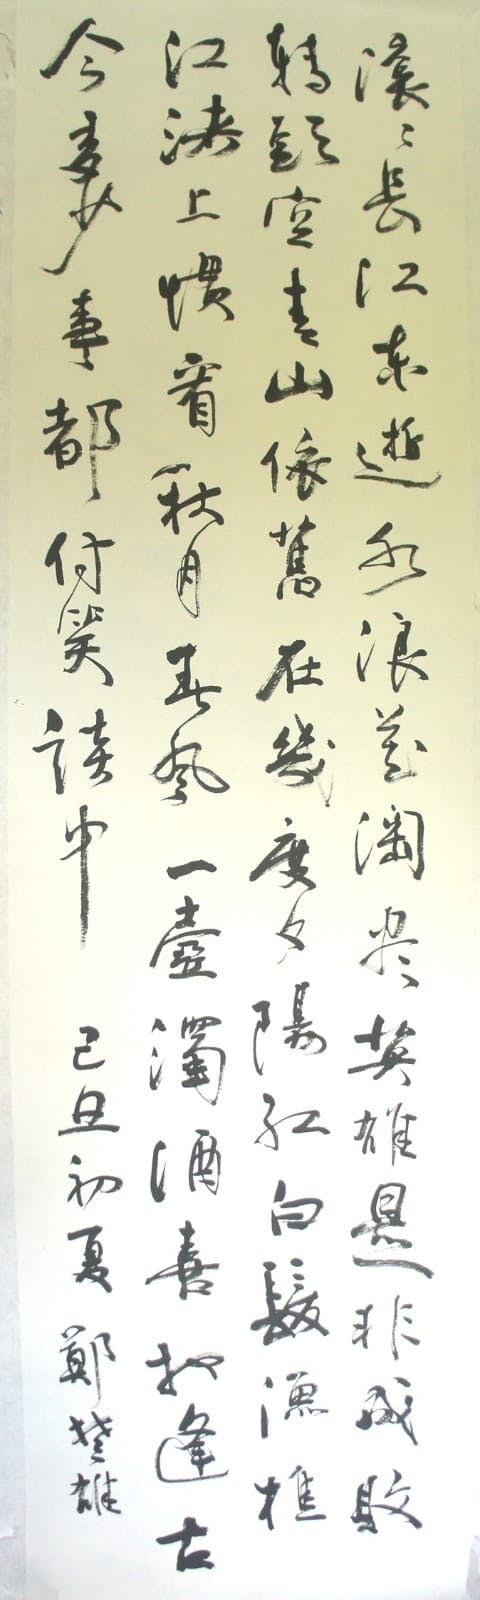 滚〻長江东逝水浪花淘尽英雄是非成敗
轉頭空青山依舊在幾度夕陽紅白髮漁樵
江渚上慣看秋月春风一壺濁酒喜相逢古
今多少事都付笑談中 己丑初夏 鄭楚雄